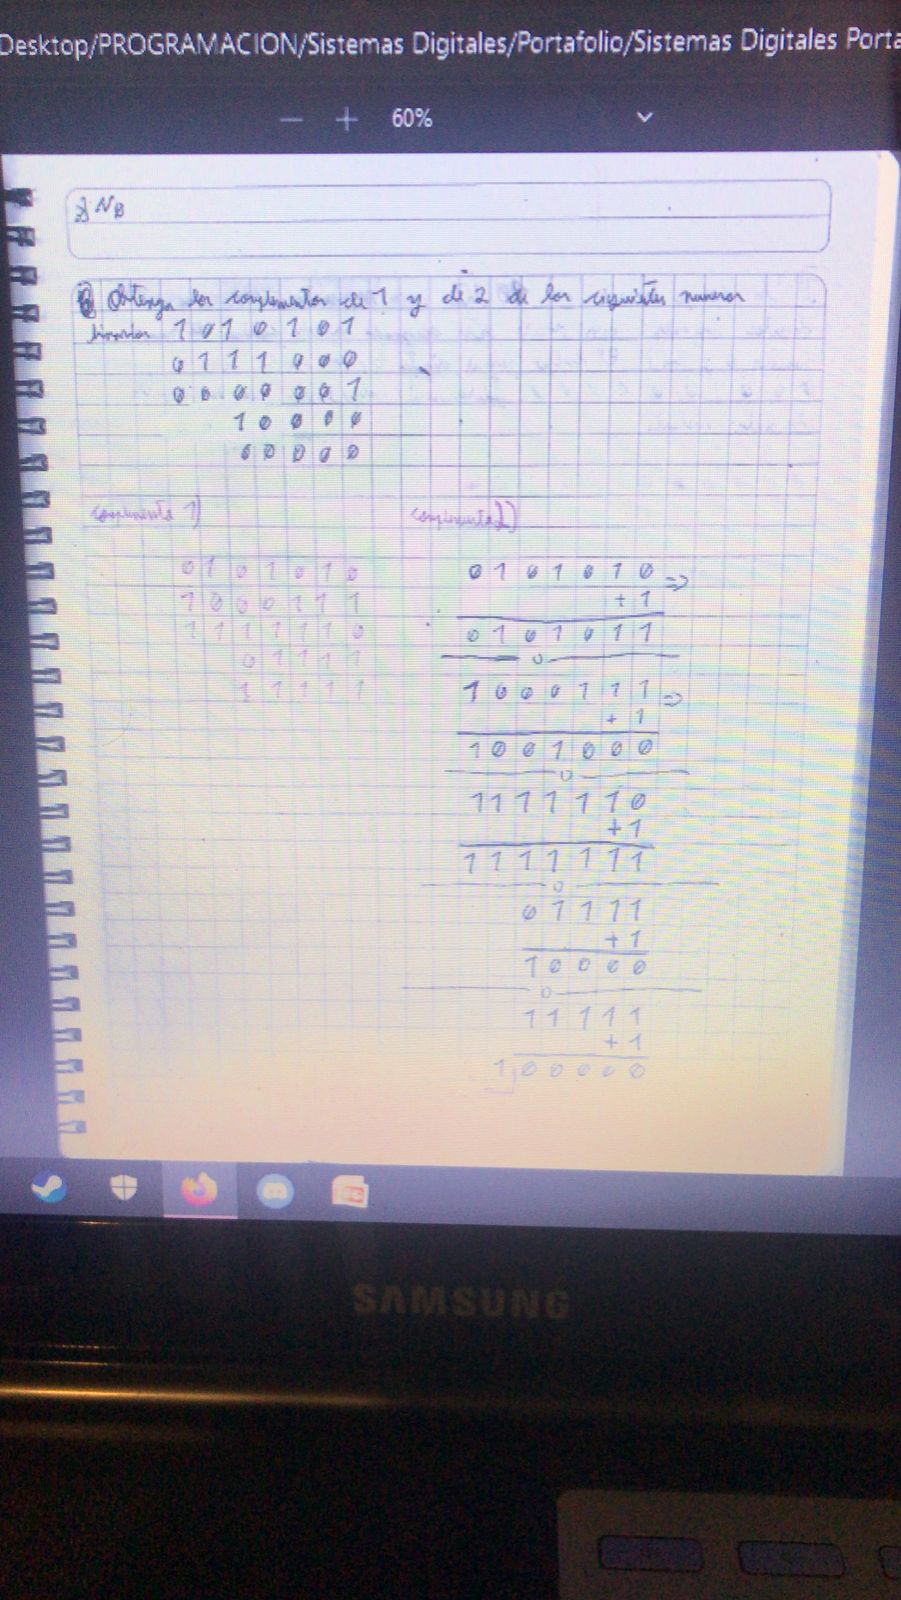 Desktop/PROGRAMACION/Sistemas Digitales/Portafolio/Sistemas Digitales Porta
60%
Obtenga los complementos de 1 y de 2 de los siguientes numeros
binarios 1010101
0111000
0000001
10000
00000
complemento 1) complemento 2)
0101010
1000111
1111110
01111
11111
0101010 =>
+1
0101011
1000111 =>
+1
1001000
1111110
+1
1111111
01111
+1
10000
11111
+1
100000
SAMSUNG